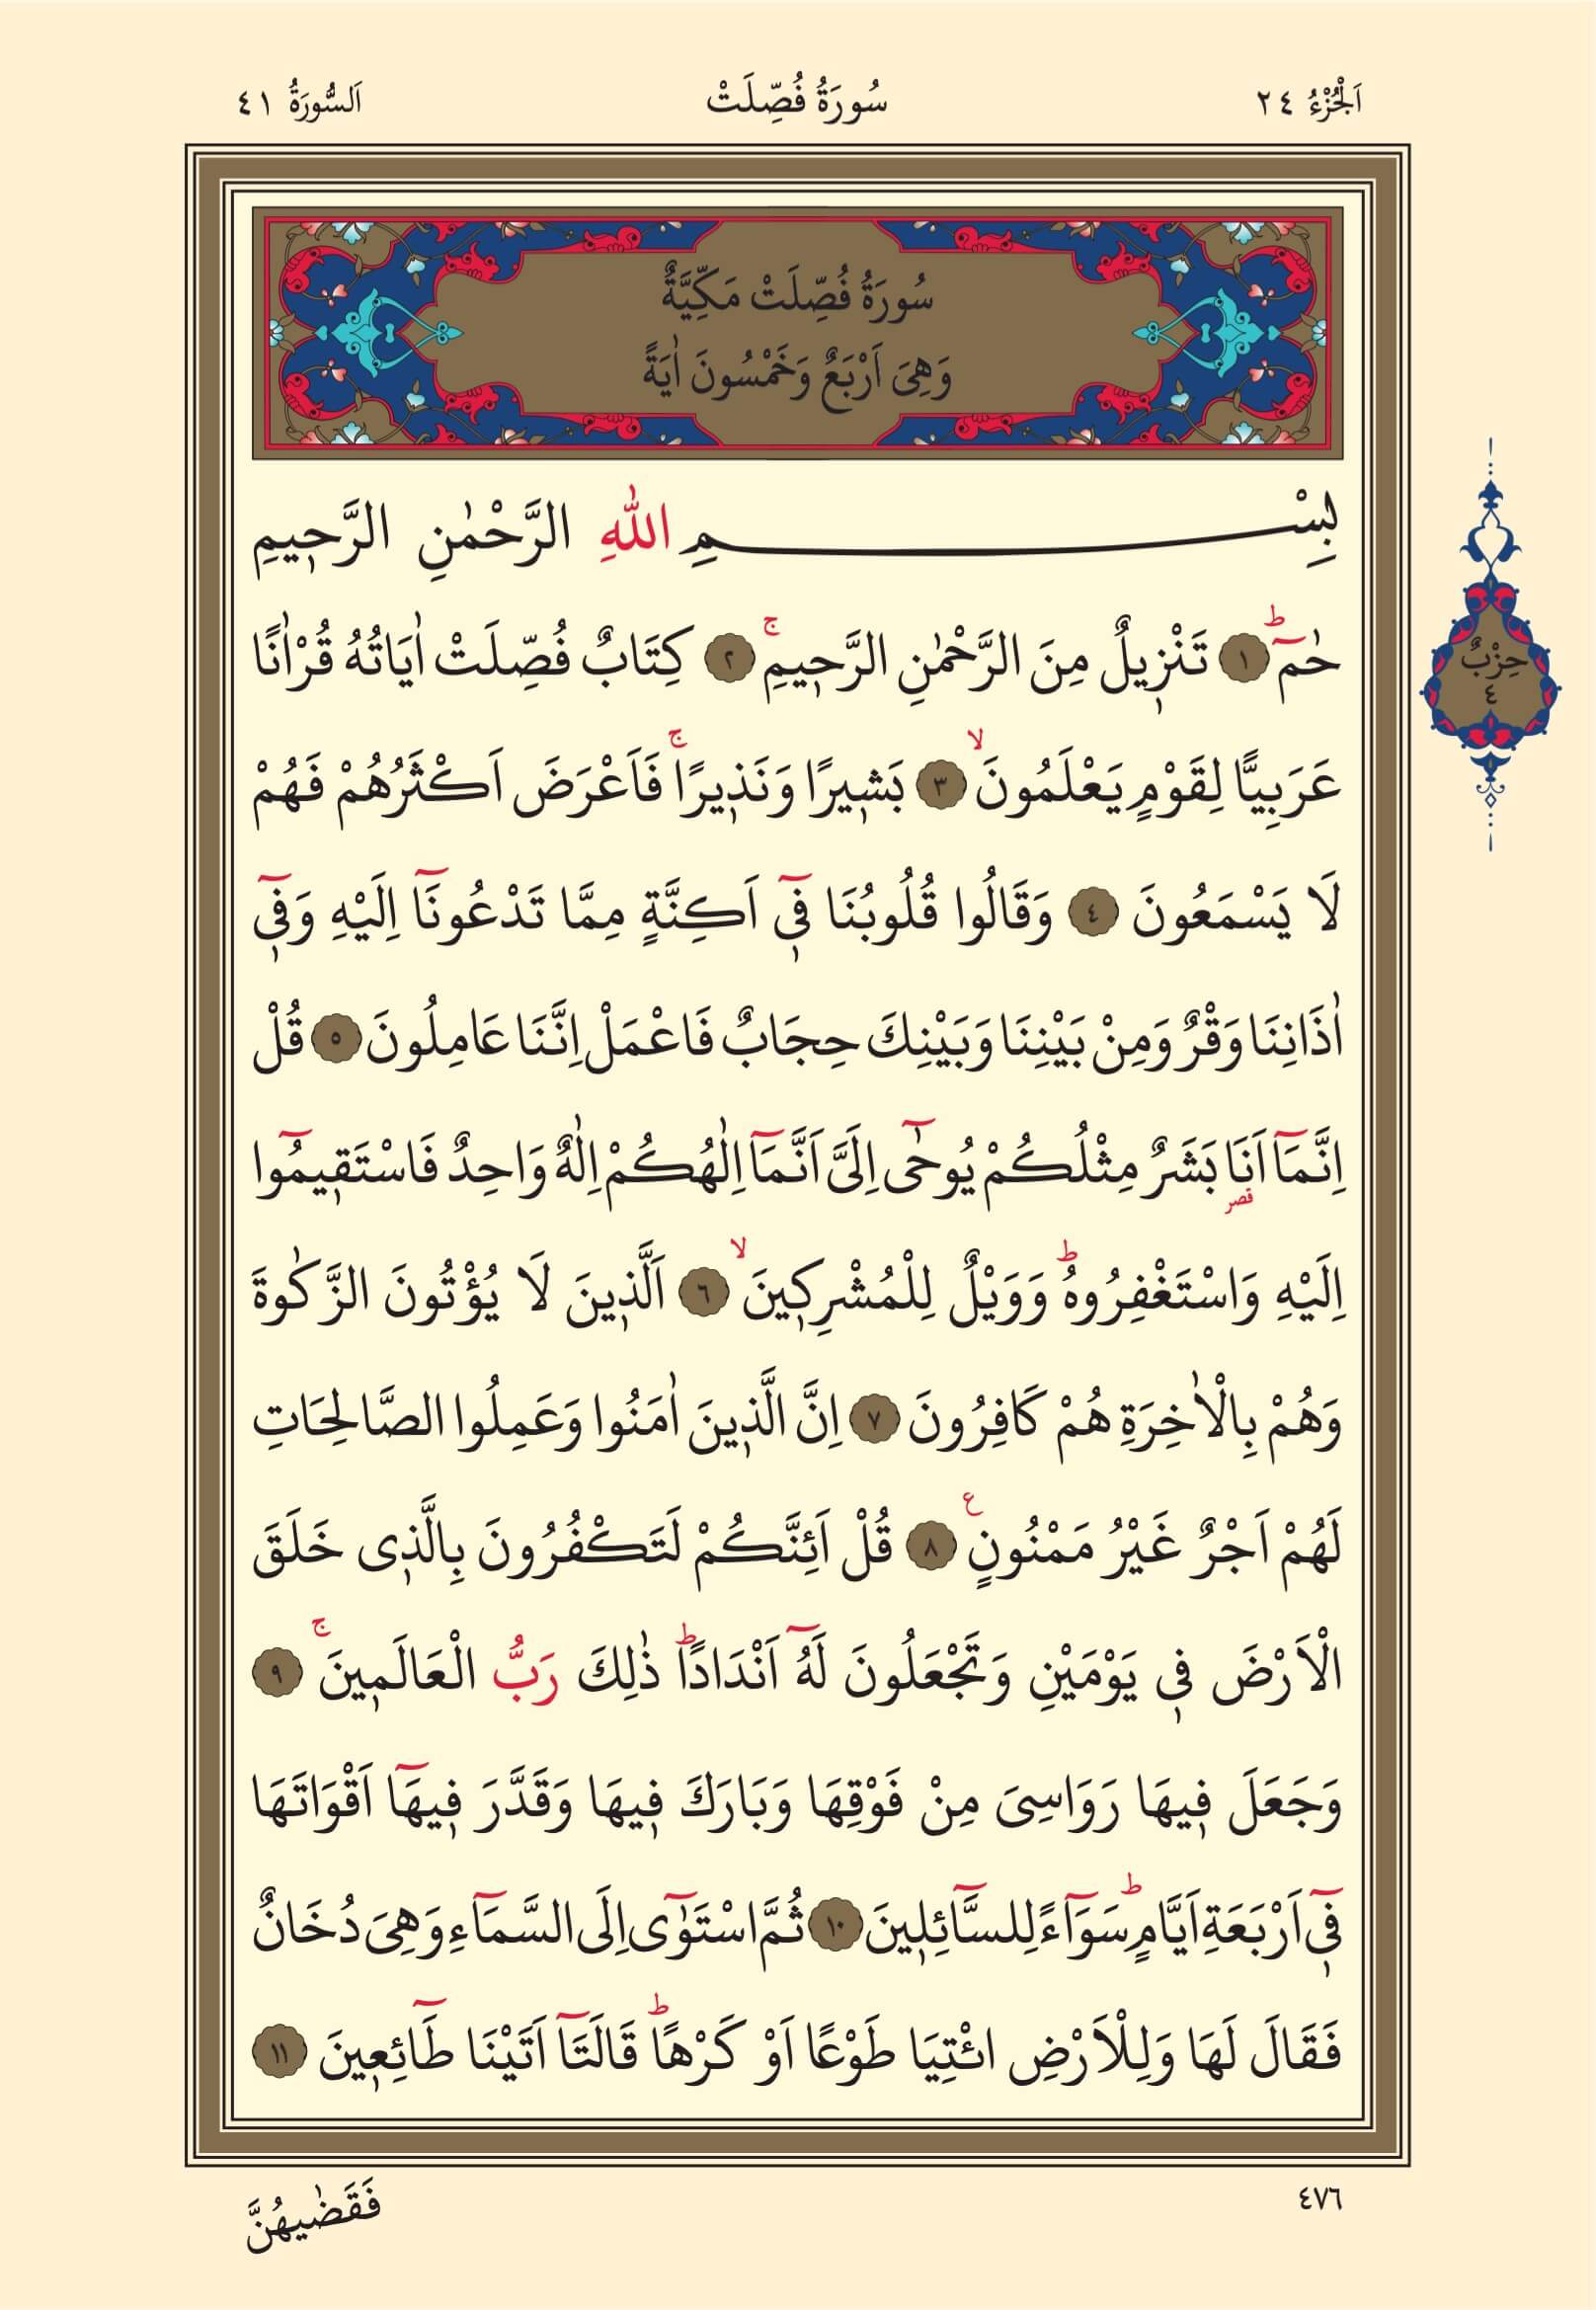 اَلْجُزْءُ ٢٤ سُورَةُ فُصِّلَتْ اَلسُّورَةُ ٤١
سُورَةُ فُصِّلَتْ مَكِّيَّةٌ
وَهِىَ اَرْبَعٌ وَخَمْسُونَ اٰيَةً
بِسْمِ اللّٰهِ الرَّحْمٰنِ الرَّح۪يمِ
حٰمٓۜ ﴿١﴾ تَنْز۪يلٌ مِنَ الرَّحْمٰنِ الرَّح۪يمِۚ ﴿٢﴾ كِتَابٌ فُصِّلَتْ اٰيَاتُهُ قُرْاٰنًا
عَرَبِيًّا لِقَوْمٍ يَعْلَمُونَۙ ﴿٣﴾ بَش۪يرًا وَنَذ۪يرًاۚ فَاَعْرَضَ اَكْثَرُهُمْ فَهُمْ
لَا يَسْمَعُونَ ﴿٤﴾ وَقَالُوا قُلُوبُنَا ف۪ٓى اَكِنَّةٍ مِمَّا تَدْعُونَٓا اِلَيْهِ وَف۪ٓى
اٰذَانِنَا وَقْرٌ وَمِنْ بَيْنِنَا وَبَيْنِكَ حِجَابٌ فَاعْمَلْ اِنَّنَا عَامِلُونَ ﴿٥﴾ قُلْ
اِنَّمَٓا اَنَا۬ بَشَرٌ مِثْلُكُمْ يُوحٰٓى اِلَىَّ اَنَّمَٓا اِلٰهُكُمْ اِلٰهٌ وَاحِدٌ فَاسْتَق۪يمُٓوا
قصر
اِلَيْهِ وَاسْتَغْفِرُوهُۜ وَوَيْلٌ لِلْمُشْرِك۪ينَۙ ﴿٦﴾ اَلَّذ۪ينَ لَا يُؤْتُونَ الزَّكٰوةَ
وَهُمْ بِالْاٰخِرَةِ هُمْ كَافِرُونَ ﴿٧﴾ اِنَّ الَّذ۪ينَ اٰمَنُوا وَعَمِلُوا الصَّالِحَاتِ
لَهُمْ اَجْرٌ غَيْرُ مَمْنُونٍ ع ﴿٨﴾ قُلْ اَئِنَّكُمْ لَتَكْفُرُونَ بِالَّذ۪ى خَلَقَ
الْاَرْضَ ف۪ى يَوْمَيْنِ وَتَجْعَلُونَ لَهُٓ اَنْدَادًاۜ ذٰلِكَ رَبُّ الْعَالَم۪ينَۚ ﴿٩﴾
وَجَعَلَ ف۪يهَا رَوَاسِىَ مِنْ فَوْقِهَا وَبَارَكَ ف۪يهَا وَقَدَّرَ ف۪يهَٓا اَقْوَاتَهَا
ف۪ٓى اَرْبَعَةِ اَيَّامٍۜ سَوَٓاءً لِلسَّٓائِل۪ينَ ﴿١٠﴾ ثُمَّ اسْتَوٰٓى اِلَى السَّمَٓاءِ وَهِىَ دُخَانٌ
فَقَالَ لَهَا وَلِلْاَرْضِ ائْتِيَا طَوْعًا اَوْ كَرْهًاۜ قَالَتَٓا اَتَيْنَا طَٓائِع۪ينَ ﴿١١﴾
حِزْبٌ
٤
٤٧٦
فَقَضٰيهُنَّ